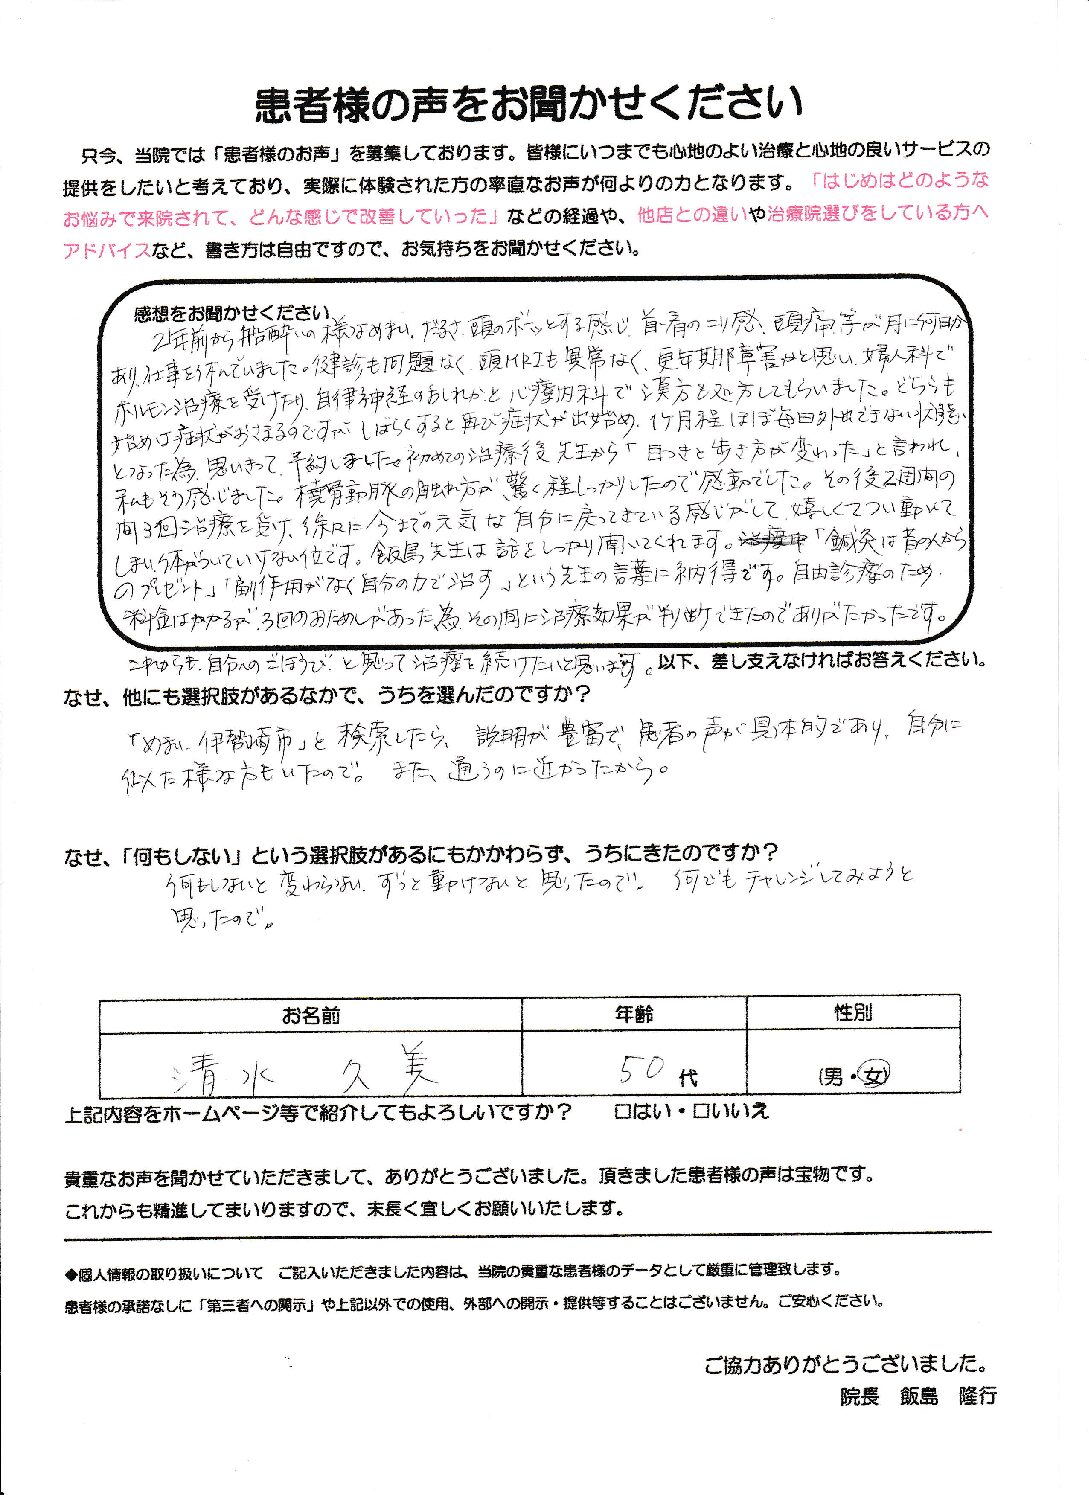 患者様の声をお聞かせください
只今、当院では「患者様のお声」を募集しております。皆様にいつまでも心地のよい治療と心地の良いサービスの
提供をしたいと考えており、実際に体験された方の率直なお声が何よりの力となります。「はじめはどのような
お悩みで来院されて、どんな感じで改善していった」などの経過や、他店との違いや治療院選びをしている方へ
アドバイスなど、書き方は自由ですので、お気持ちをお聞かせください。
感想をお聞かせください
2年前から船酔いの様なめまい、だるさ、頭のボーッとする感じ、首・肩のコリ感、頭痛等が月に何日か
あり、仕事を休んでいました。健診も問題なく、頭MRIも異常なく、更年期障害かと思い、婦人科で
ホルモン治療を受けたり、自律神経のみだれかと心療内科で漢方を処方してもらいました。どちらも
始めは症状がおさまるのですが、しばらくすると再び症状が出始め、1ヶ月程ほぼ毎日外出できない状態
となった為、思いきって予約しました。初めての治療後、先生から「目つきと歩き方が変わった」と言われ、
私もそう感じました。橈骨動脈の触れ方が、驚く程しっかりしたので感動でした。その後2週間の
間3回治療を受け、徐々に今までの元気な自分に戻ってきている感じがして、嬉しくてつい動いて
しまい、体がついていけない位です。飯島先生は話をしっかり聞いてくれます。「鍼灸は昔の人から
のプレゼント」「副作用がなく自分の力で治す」という先生の言葉に納得です。自由診療のため、
料金はかかるが、3回のおためしがあった為、その間に治療効果が判断できたのでありがたかったです。
これからも、自分へのごほうび、と思って治療を続けたいと思います。以下、差し支えなければお答えください。
なぜ、他にも選択肢があるなかで、うちを選んだのですか？
「めまい 伊勢崎市」と検索したら、説明が豊富で、患者の声が具体的であり、自分に
似た様な方もいたので。また、通うのに近かったから。
なぜ、「何もしない」という選択肢があるにもかかわらず、うちにきたのですか？
何もしないと変わらない、ずっと動けないと思ったので。何でもチャレンジしてみようと
思ったので。
お名前 年齢 性別
清水 久美 50代 (男・女)
上記内容をホームページ等で紹介してもよろしいですか？ □はい・□いいえ
貴重なお声を聞かせていただきまして、ありがとうございました。頂きました患者様の声は宝物です。
これからも精進してまいりますので、末長く宜しくお願いいたします。
◆個人情報の取り扱いについて ご記入いただきました内容は、当院の貴重な患者様のデータとして厳重に管理致します。
患者様の承諾なしに「第三者への開示」や上記以外での使用、外部への開示・提供等することはございません。ご安心ください。
ご協力ありがとうございました。
院長 飯島 隆行